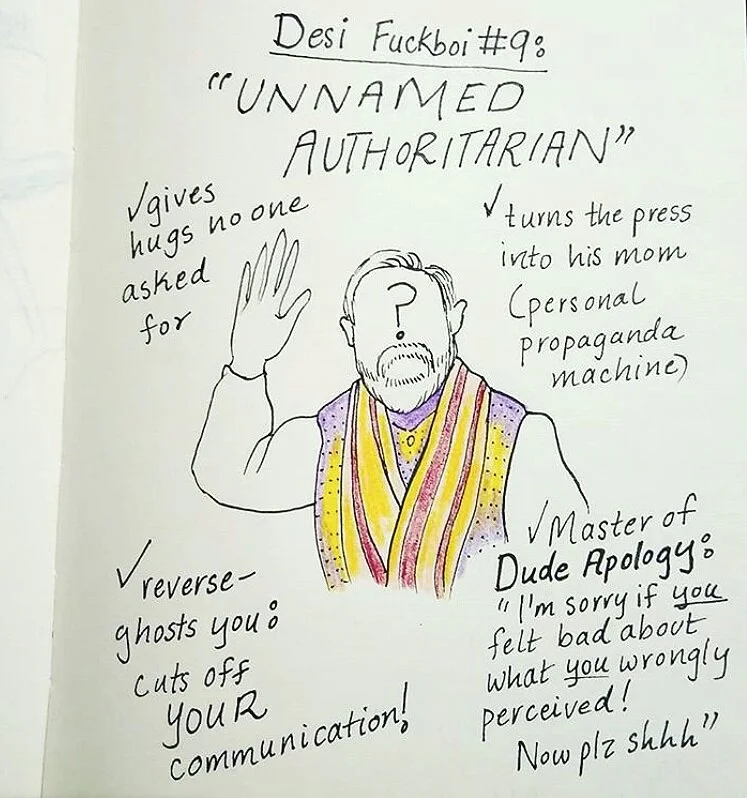 Desi Fuckboi #9:
"UNNAMED
AUTHORITARIAN"
✓gives
hugs no one
asked
for
✓turns the press
into his mom
(personal
propaganda
machine)
?
✓reverse-
ghosts you:
cuts off
YOUR
communication!
✓Master of
Dude Apology:
"I'm sorry if you
felt bad about
what you wrongly
perceived!
Now plz shhh"